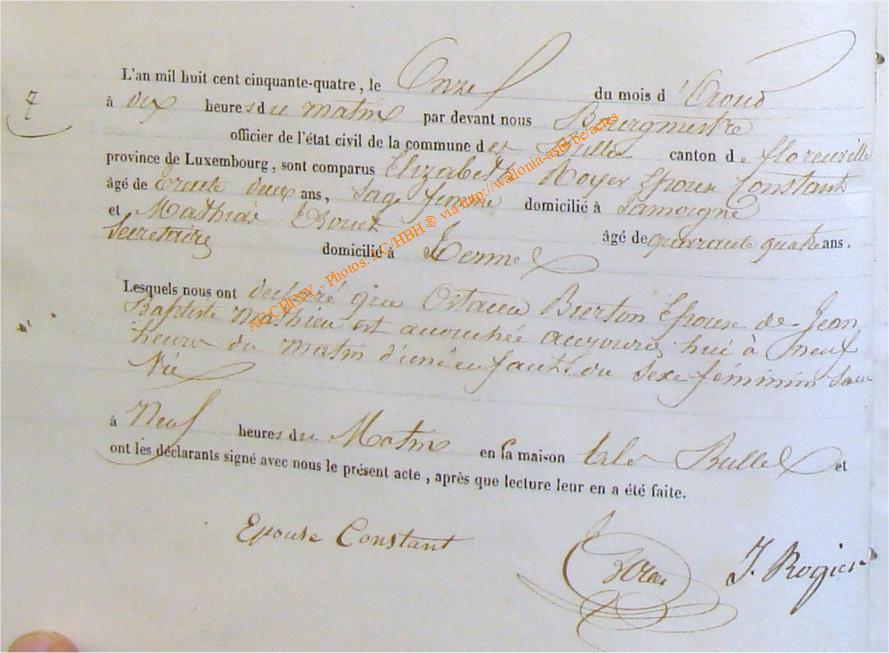 L'an mil huit cent cinquante-quatre, le Onze du mois d'Aoud
7
à dix heures du matin par devant nous Bourgmestre
officier de l'état civil de la commune de Bulle canton de florenville
province de Luxembourg, sont comparus Elizabeth Noyer Epouse Constant
âgé de trente deux ans, Sage femme domicilié à Jamoigne
et Mathias âgé de quarante quatre ans.
Secretaire domicilié à Termes
Lesquels nous ont declaré que Burton Epouse de Jean
Baptiste Mathieu est accouchée aujourd hui à neuf
heure du matin d'une enfant du Sexe féminin San
Vie
à Neuf heures du Matin en sa maison Bulle et
ont les déclarants signé avec nous le présent acte, après que lecture leur en a été faite.
Epouse Constant
J. Rogier
ACCHISX - Photos: LC/HBH ® via http://wallonia-asbl.be/actes